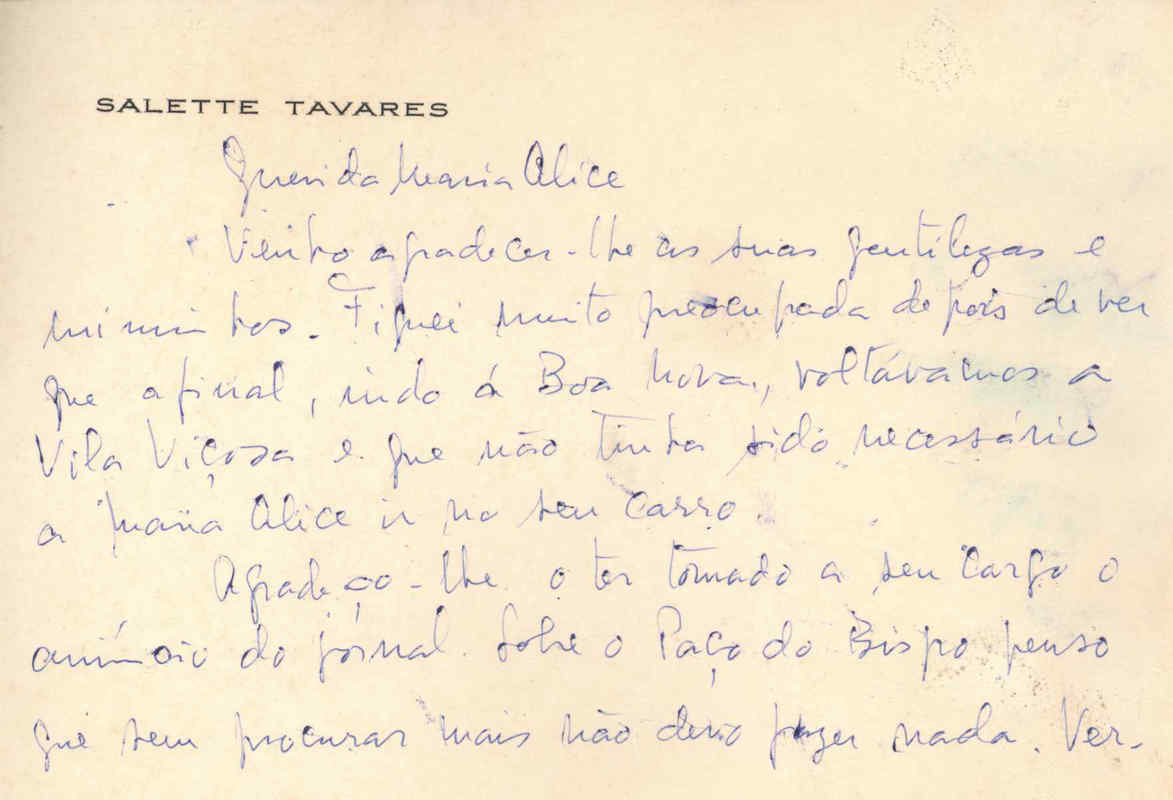 SALETTE TAVARES
Querida Maria Alice
Venho agradecer-lhe as suas gentilezas e
miminhos. Fiquei muito preocupada depois de ver
que afinal, indo á Boa Nova, voltávamos a
Vila Viçosa e que não tinha sido necessário
a Maria Alice ir no seu carro.
Agradeço-lhe o ter tomado a seu cargo o
anúncio do jornal. Sobre o Paço do Bispo penso
que sem procurar mais não devo fazer nada. Ver-